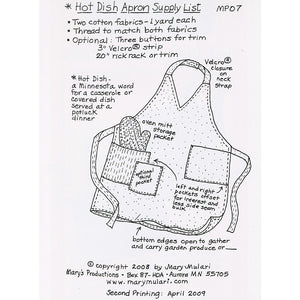 * Hot Dish Apron Supply List MP07
• Two cotton fabrics - 1 yard each
• Thread to match both fabrics
• Optional: Three buttons for trim
3" Velcro® strip
20" rick rack or trim
* Hot Dish -
a Minnesota word
for a casserole or
covered dish
served at a
potluck
dinner
Velcro®
closure
on
neck
strap
oven mitt
storage
pocket
optional
third
pocket
left and right
pockets offset
for interest and
less side seam
bulk!
bottom edges open to gather
and carry garden produce or
© copyright 2008 by Mary Mulari
Mary's Productions - Box 87-HDA - Aurora MN 55705
www.marymulari.com
Second Printing: April 2009